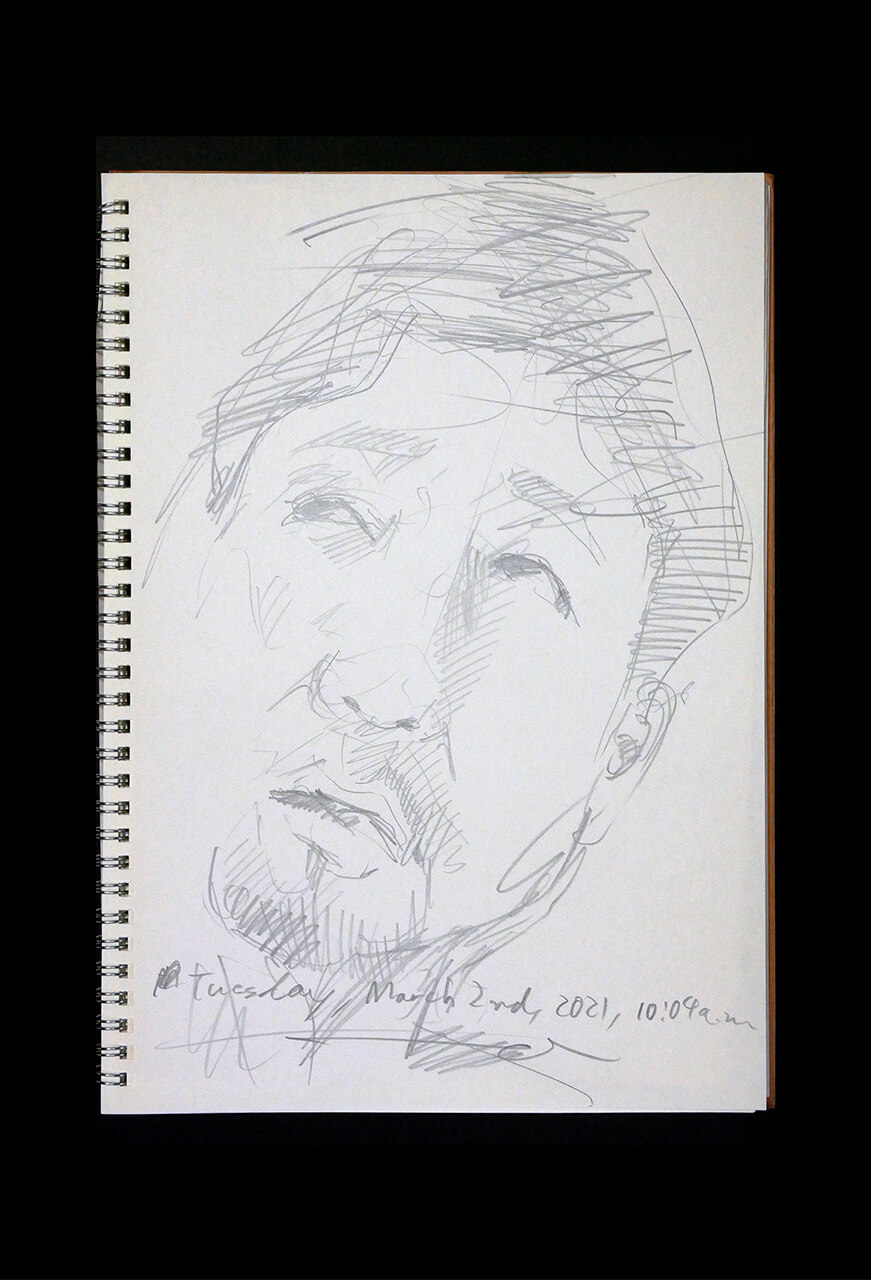 Tuesday, March 2nd, 2021, 10:09a.m